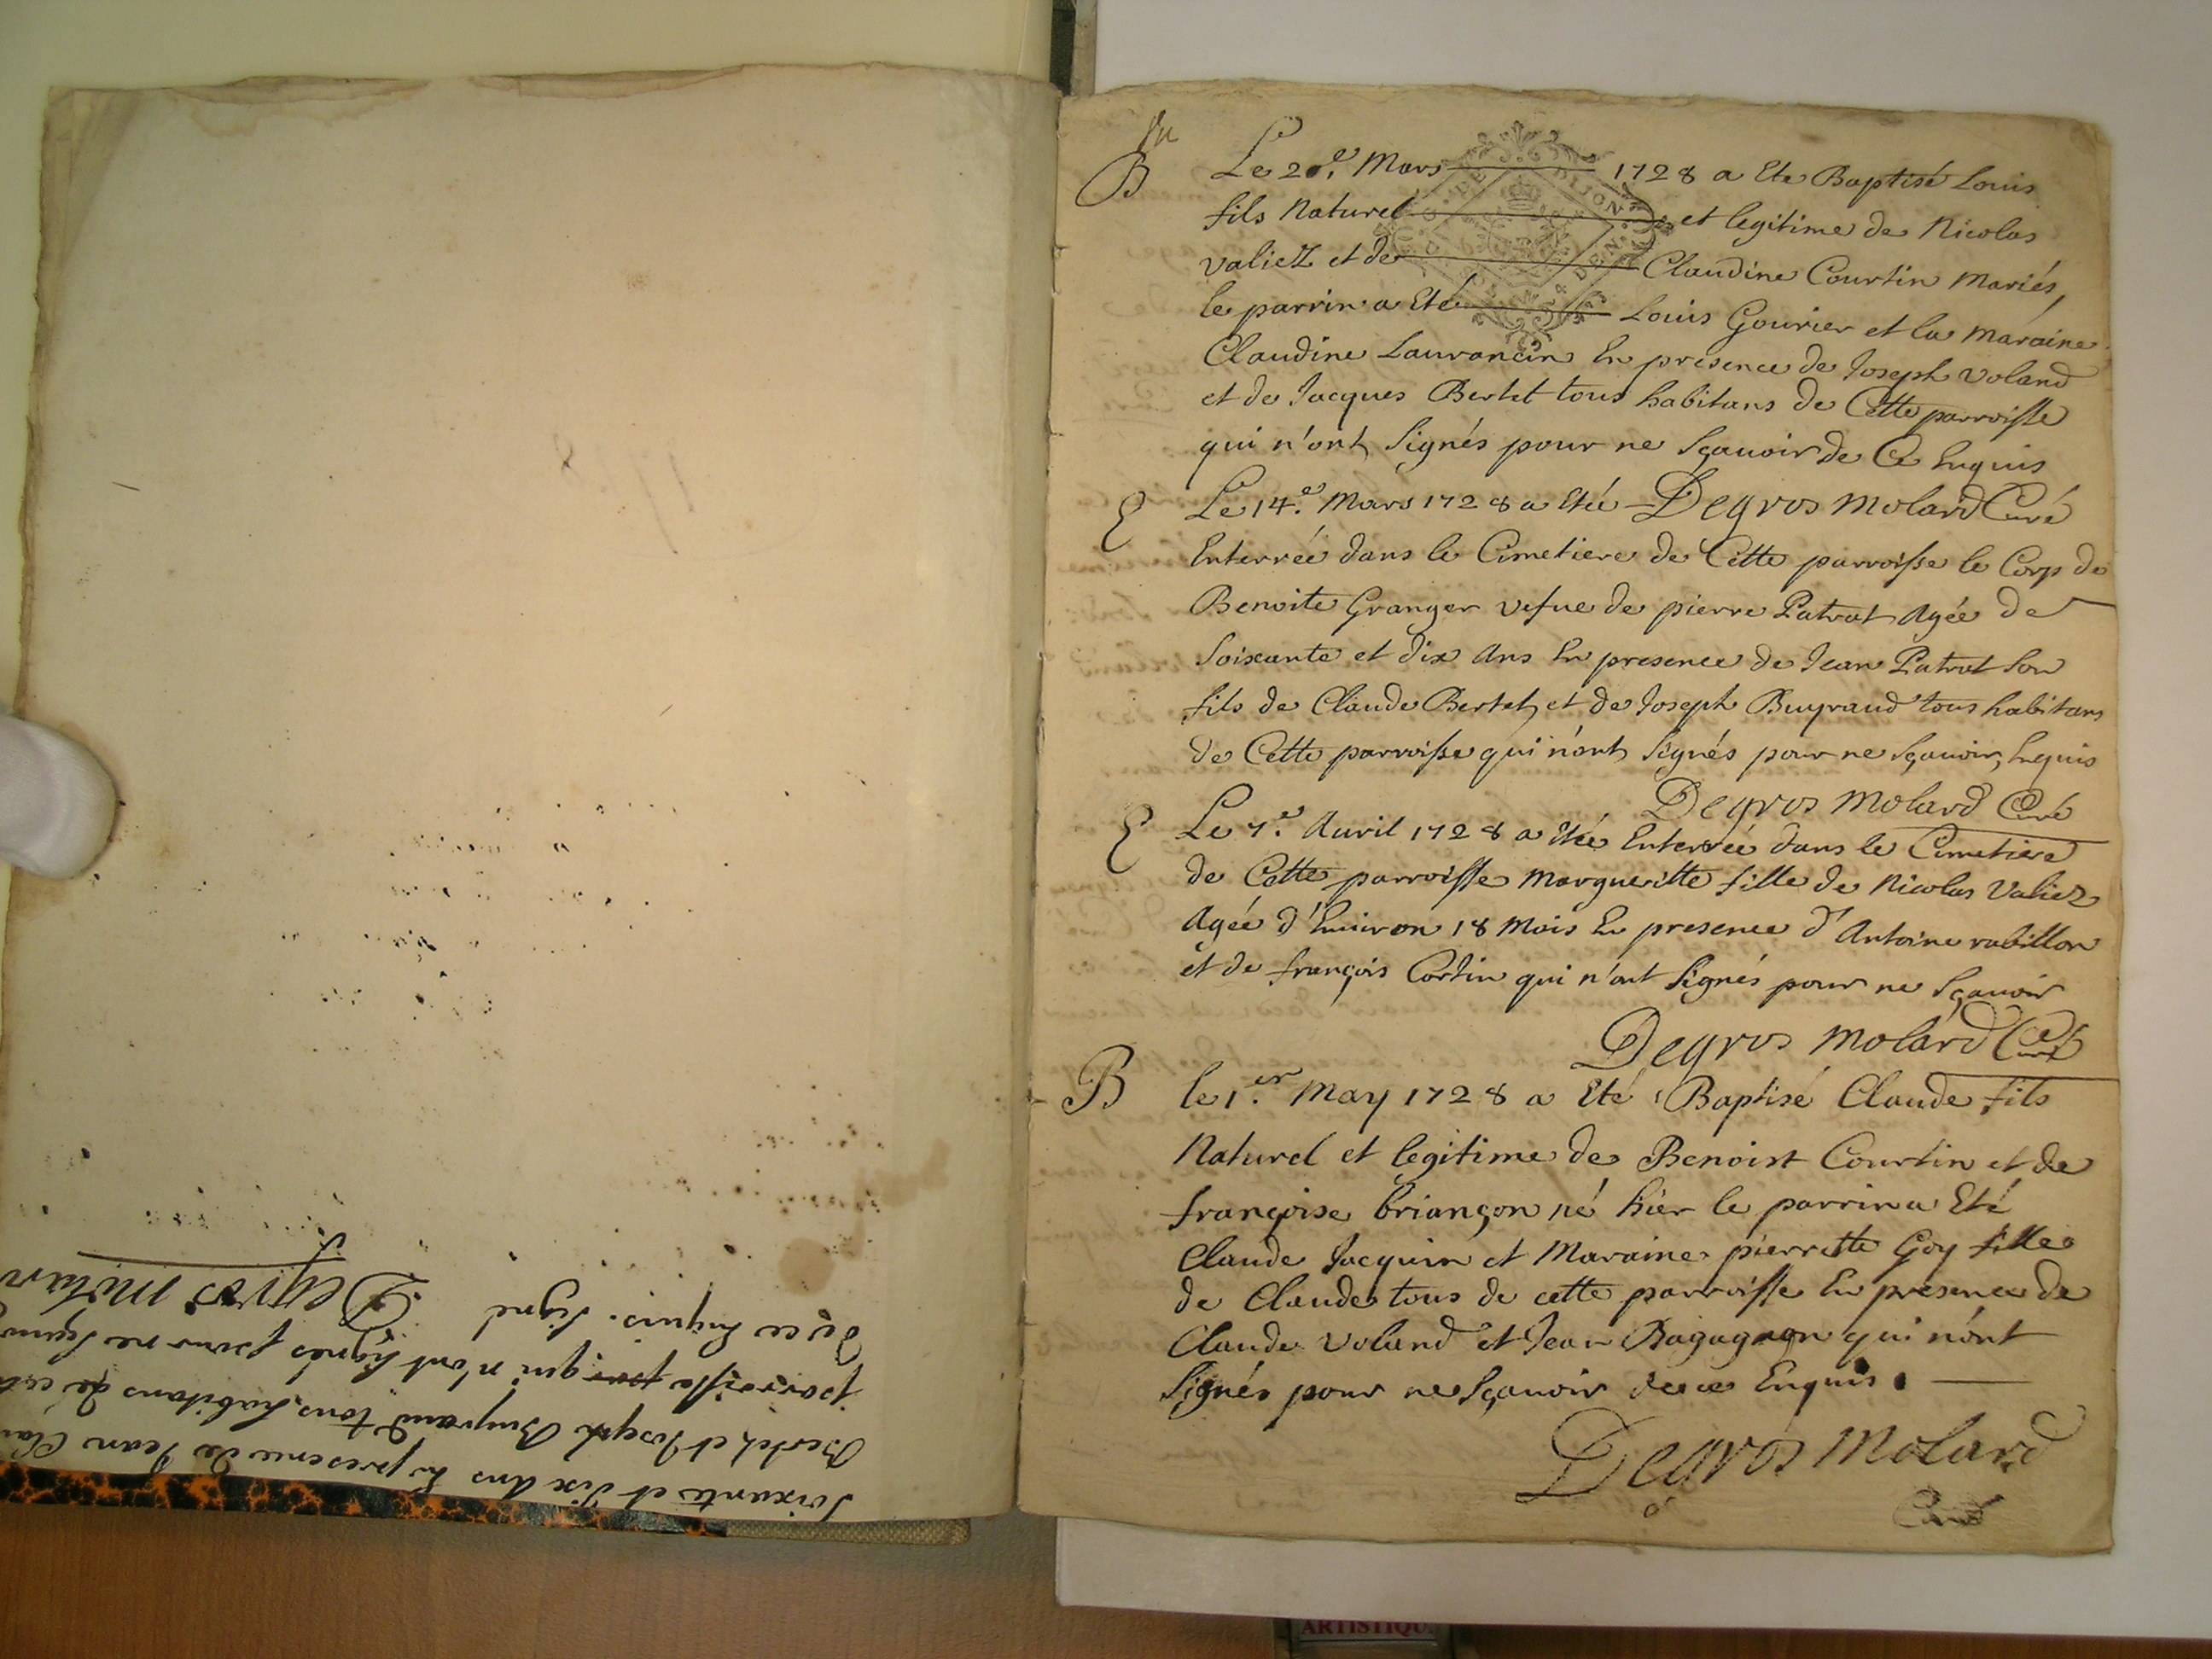 B
Le 20e. Mars 1728 a Ete Baptisé Louis
fils Naturel et legitime de Nicolas
valieZ et de Claudine Courtin Mariés,
le parrin a Eté Louis Gourier et la Maraine
Claudine Laurancin En presence de Joseph Voland
et de Jacques Bertet tous habitans de Cette parroisse
qui n'ont Signés pour ne Sçauoir de Ce Enquis
Degros molard Curé
E
Le 14e. Mars 1728 a Etée
Enterrée dans le Cimetiere de Cette parroisse le Corp de
Benoite Granger vefue de pierre Patrat Agée de
Soixante et dix Ans En presence de Jean Patrat Son
fils de Claude Bertet et de Joseph Buyraud tous habitans
de Cette parroisse qui n'ont Signés pour ne Sçauoir, Enquis
Degros Molard Curé
E
Le 7e. Auril 1728 a Etée Enterrée dans le Cimetiere
de Cette parroisse Margueritte fille de Nicolas Valiez
Agée d'Enuiron 18 Mois En presence d'Antoine rabillon
et de françois Cortin qui n'ont Signés pour ne Sçauoir
Degros Molard Curé
B
le 1er. May 1728 a Eté Baptisé Claude fils
Naturel et legitime de Benoist Courtin et de
françoise briançon né hier le parrin a Eté
Claude Jacquin et Maraine pierrette Goy fille
de Claude tous de cette parroisse En presence de
Claude Voland et Jean qui n'ont
Signés pour ne Sçauoir de ce Enquis.
Degros Molard
Curé
Soixante et dix Ans En presence de Jean
Bertet et Joseph Buyraud tous habitans de
parroisse qui n'ont Signés pour ne
de ce Enquis. Signé
Degros
ARTISTIQU